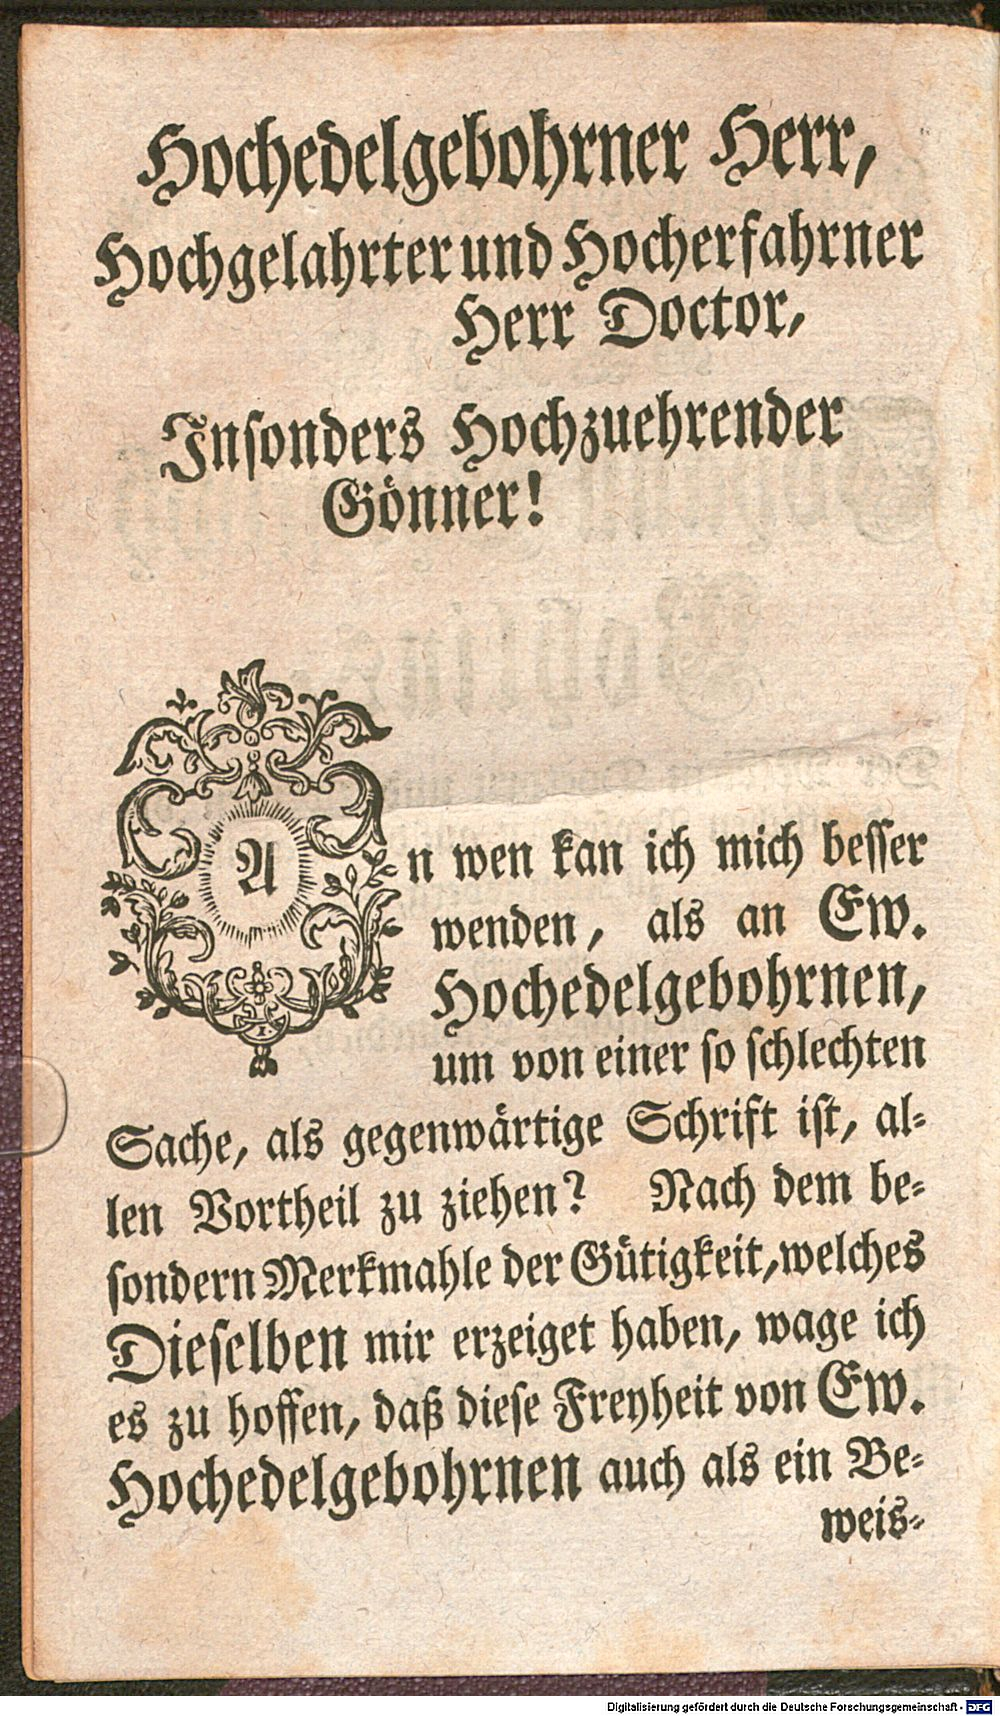 Hochedelgebohrner Herr,
Hochgelahrter und Hocherfahrner
Herr Doctor,
Insonders Hochzuehrender
Gönner!
An wen kan ich mich besser
wenden, als an Ew.
Hochedelgebohrnen,
um von einer so schlechten
Sache, als gegenwärtige Schrift ist, al-
len Vortheil zu ziehen? Nach dem be-
sondern Merkmahle der Gütigkeit, welches
Dieselben mir erzeiget haben, wage ich
es zu hoffen, daß diese Freyheit von Ew.
Hochedelgebohrnen auch als ein Be-
weis-
Digitalisierung gefördert durch die Deutsche Forschungsgemeinschaft - DFG